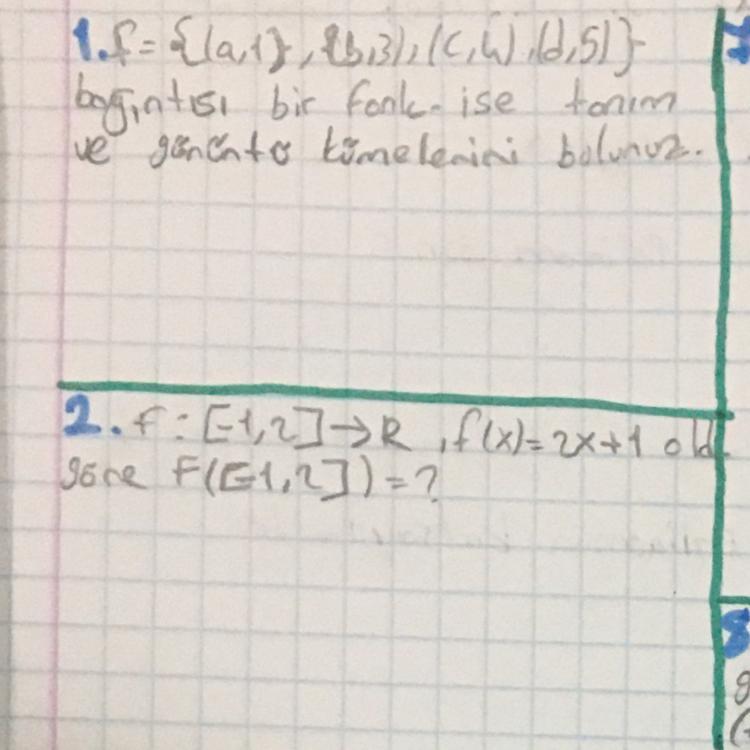 1. f = {(a,1), (b,3), (c,4), (d,5)}
bagıntısı bir fonk. ise tanım
ve görüntü kümelerini bulunuz.
2. f : [-1,2] → R, f(x) = 2x+1 old.
göre f([-1,2]) = ?